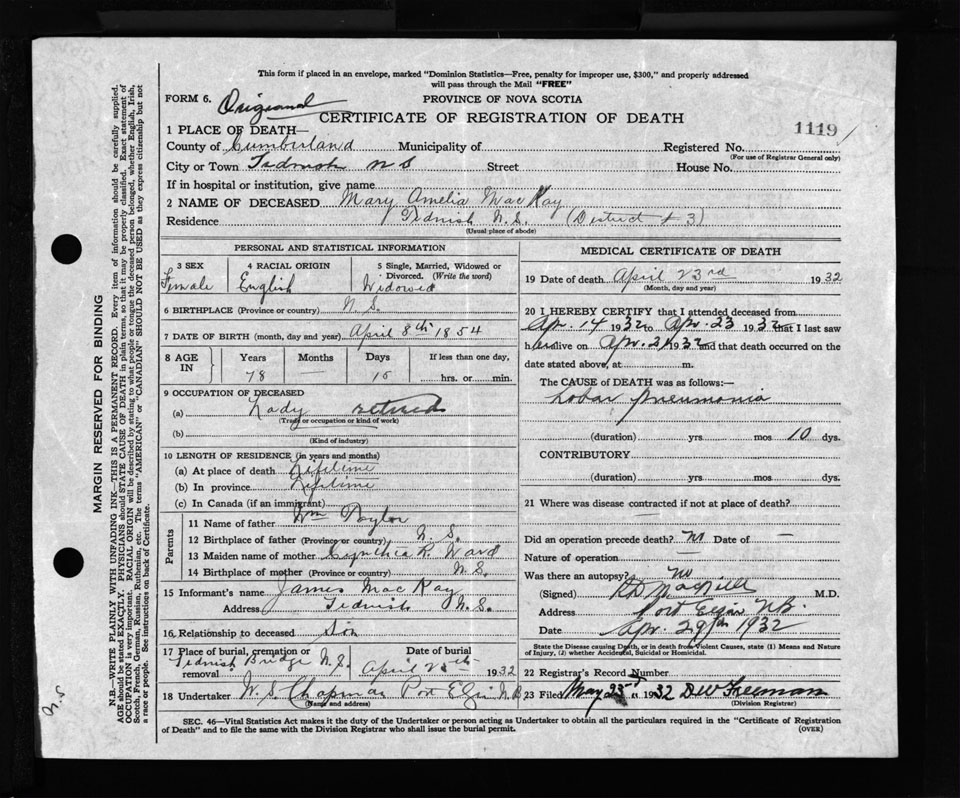 This form if placed in an envelope, marked "Dominion Statistics—Free, penalty for improper use, $300," and properly addressed
will pass through the Mail "FREE"
FORM 6. Original PROVINCE OF NOVA SCOTIA
CERTIFICATE OF REGISTRATION OF DEATH
1119
1 PLACE OF DEATH—
County of Cumberland Municipality of Registered No.
(For use of Registrar General only)
City or Town Tidnish N S Street House No.
If in hospital or institution, give name
2 NAME OF DECEASED Mary Amelia MacKay
Residence Tidnish N. S. (District # 3)
(Usual place of abode)
PERSONAL AND STATISTICAL INFORMATION
3 SEX 4 RACIAL ORIGIN 5 Single, Married, Widowed or
Divorced. (Write the word)
Female English Widowed
6 BIRTHPLACE (Province or country) N. S.
7 DATE OF BIRTH (month, day and year) April 8th 1854
8 AGE IN Years Months Days If less than one day,
78 — 15 hrs. or min.
9 OCCUPATION OF DECEASED
(a) Lady retired
(Trade or occupation or kind of work)
(b)
(Kind of industry)
10 LENGTH OF RESIDENCE (in years and months)
(a) At place of death Lifetime
(b) In province Lifetime
(c) In Canada (if an immigrant)
Parents
11 Name of father Wm Taylor
12 Birthplace of father (Province or country) N. S.
13 Maiden name of mother Cynthia R. Ward
14 Birthplace of mother (Province or country) N. S.
15 Informant's name James MacKay
Address Tidnish N. S.
16 Relationship to deceased Son
17 Place of burial, cremation or removal Date of burial
Tidnish Bridge N. S. April 1932
18 Undertaker W. S. Chapman Port Elgin N. B
(Name and address)
MEDICAL CERTIFICATE OF DEATH
19 Date of death April 23rd 1932
(Month, day and year)
20 I HEREBY CERTIFY that I attended deceased from
Apr. 14 1932 to Apr. 23 1932 that I last saw
her alive on Apr. 21 1932 and that death occurred on the
date stated above, at m.
The CAUSE of DEATH was as follows:—
Lobar pneumonia
(duration) yrs mos 10 dys.
CONTRIBUTORY
(duration) yrs mos dys.
21 Where was disease contracted if not at place of death?
Did an operation precede death? no Date of —
Nature of operation —
Was there an autopsy? no
(Signed) M.D.
Address Port Elgin N.B.
Date Apr. 29th 1932
State the Disease causing Death, or in death from Violent Causes, state (1) Means and Nature
of Injury, (2) whether Accidental, Suicidal or Homicidal.
22 Registrar's Record Number 7
23 Filed May 25 1932 D W Freeman
(Division Registrar)
SEC. 46—Vital Statistics Act makes it the duty of the Undertaker or person acting as Undertaker to obtain all the particulars required in the "Certificate of Registration
of Death" and to file the same with the Division Registrar who shall issue the burial permit. (OVER)
MARGIN RESERVED FOR BINDING
N.B.—WRITE PLAINLY WITH UNFADING INK—THIS IS A PERMANENT RECORD. Every item of information should be carefully supplied.
AGE should be stated EXACTLY. PHYSICIANS should STATE CAUSE OF DEATH in plain terms, so that it may be properly classified. Exact statement of
OCCUPATION is very important. RACIAL ORIGIN will be described by stating to what people or tongue the deceased person belonged, whether English, Irish,
Scotch, French, German, Russian, Ruthenian, etc. The terms "AMERICAN" or "CANADIAN" SHOULD NOT BE USED as they express citizenship but not
a race or people. See instructions on back of Certificate.
N.S